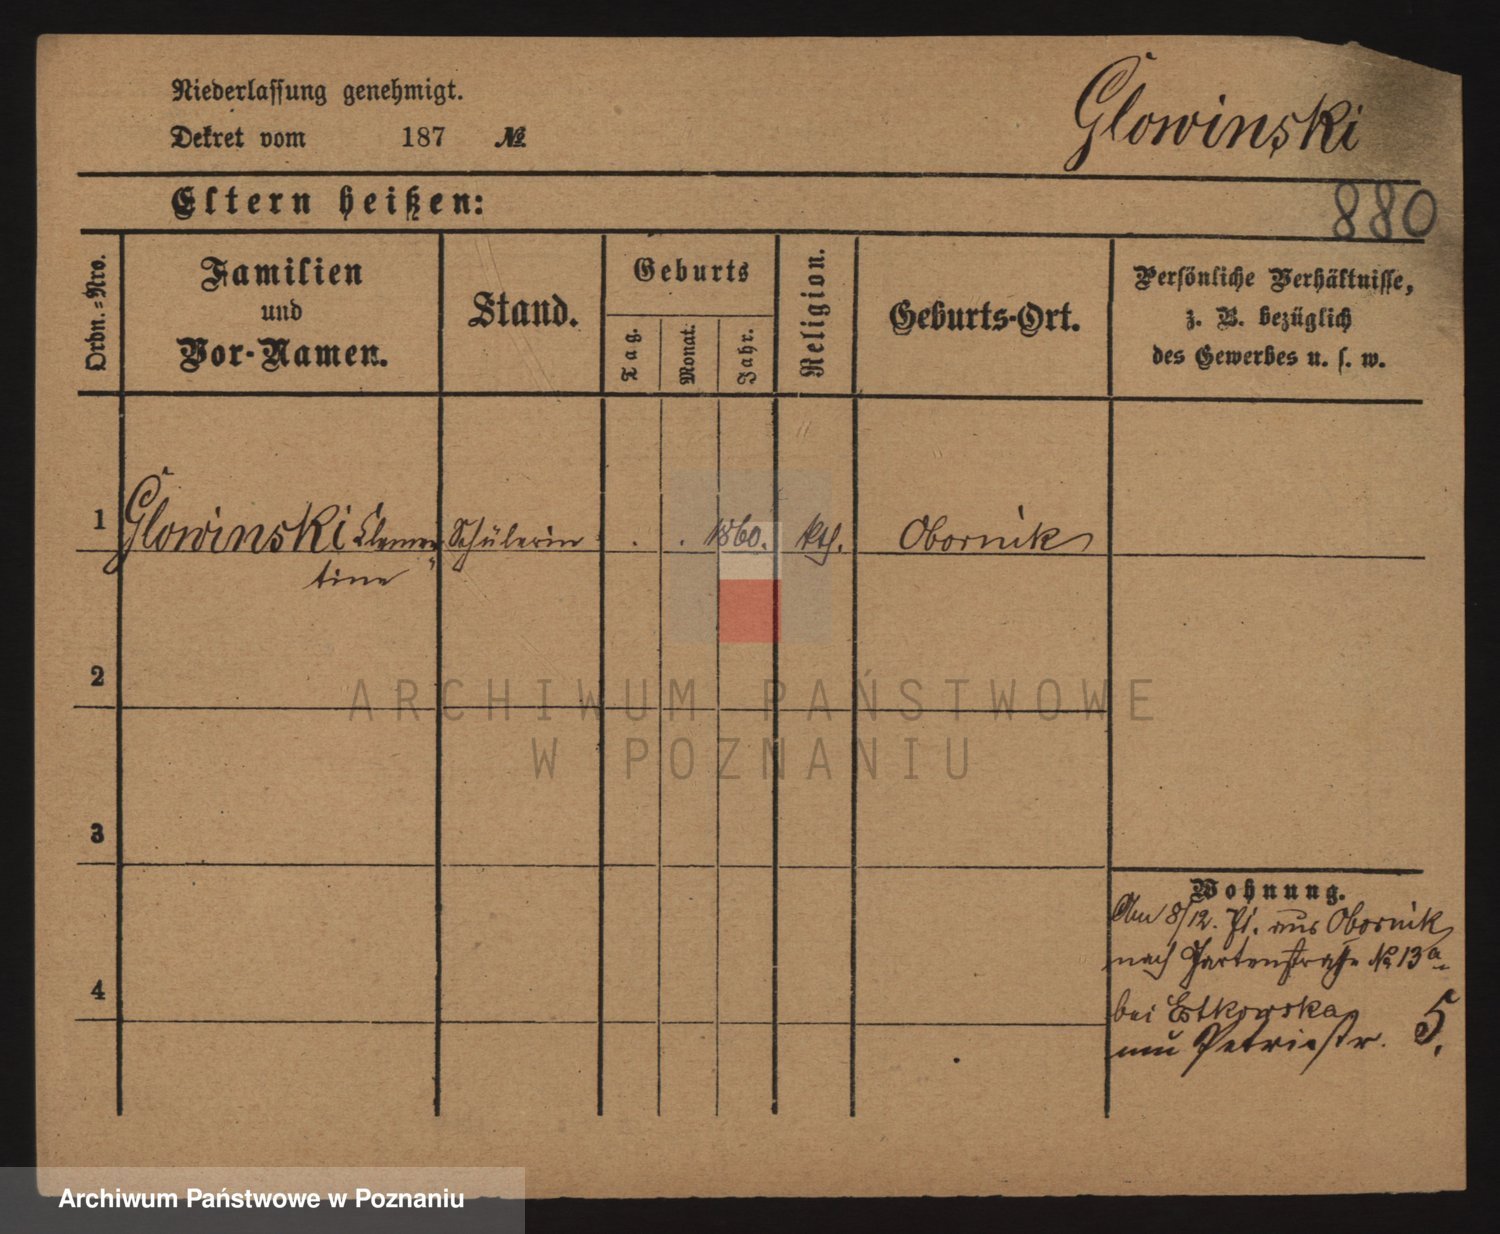 Niederlassung genehmigt.
Glowinski
Dekret vom 187 №
Eltern heißen:
880
Ordn.=Nro.
Familien
und
Vor-Namen.
Stand.
Geburts
Tag.
Monat.
Jahr.
Religion.
Geburts-Ort.
Persönliche Verhältnisse,
z. B. bezüglich
des Gewerbes u. s. w.
1 Glowinski Clemen Schülerin . . 1860. kth. Obornik
tine
2
ARCHIWUM PAŃSTWOWE
W POZNANIU
3
Wohnung.
Am 8/12. 71. aus Obornik
nach Gartenstraße № 13a
4
bei Estkowska
Petristr. 5.
Archiwum Państwowe w Poznaniu